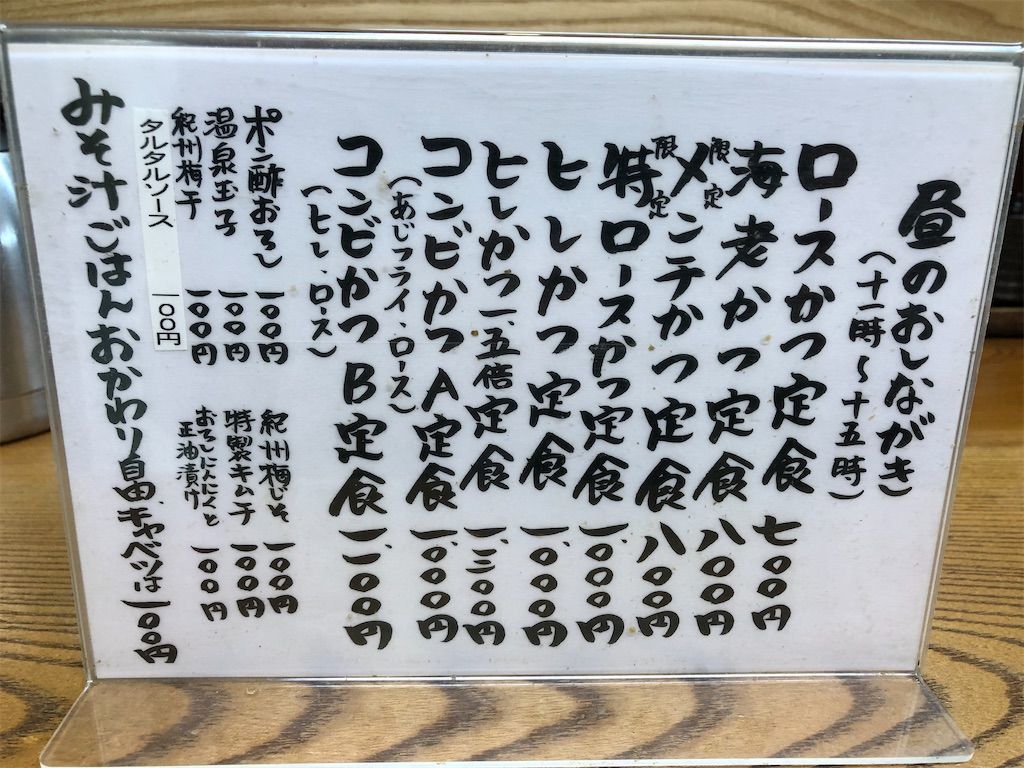 昼のおしながき
（十一時～十五時）
ロースかつ定食 七〇〇円
海老かつ定食 八〇〇円
限定 メンチかつ定食 八〇〇円
限定 特ロースかつ定食 一、〇〇〇円
ヒレかつ定食 一、〇〇〇円
ヒレかつ一、五倍定食 一、三〇〇円
コンビかつA定食 一、〇〇〇円
（あじフライ、ロース）
コンビかつB定食 一、一〇〇円
（ヒレ、ロース）
ポン酢おろし 一〇〇円
温泉玉子 一〇〇円
紀州梅干 一〇〇円
タルタルソース 一〇〇円
紀州梅じそ 一〇〇円
特製キムチ 一〇〇円
おろしにんにくと
正油漬け 一〇〇円
みそ汁ごはんおかわり自由、キャベツは一〇〇円